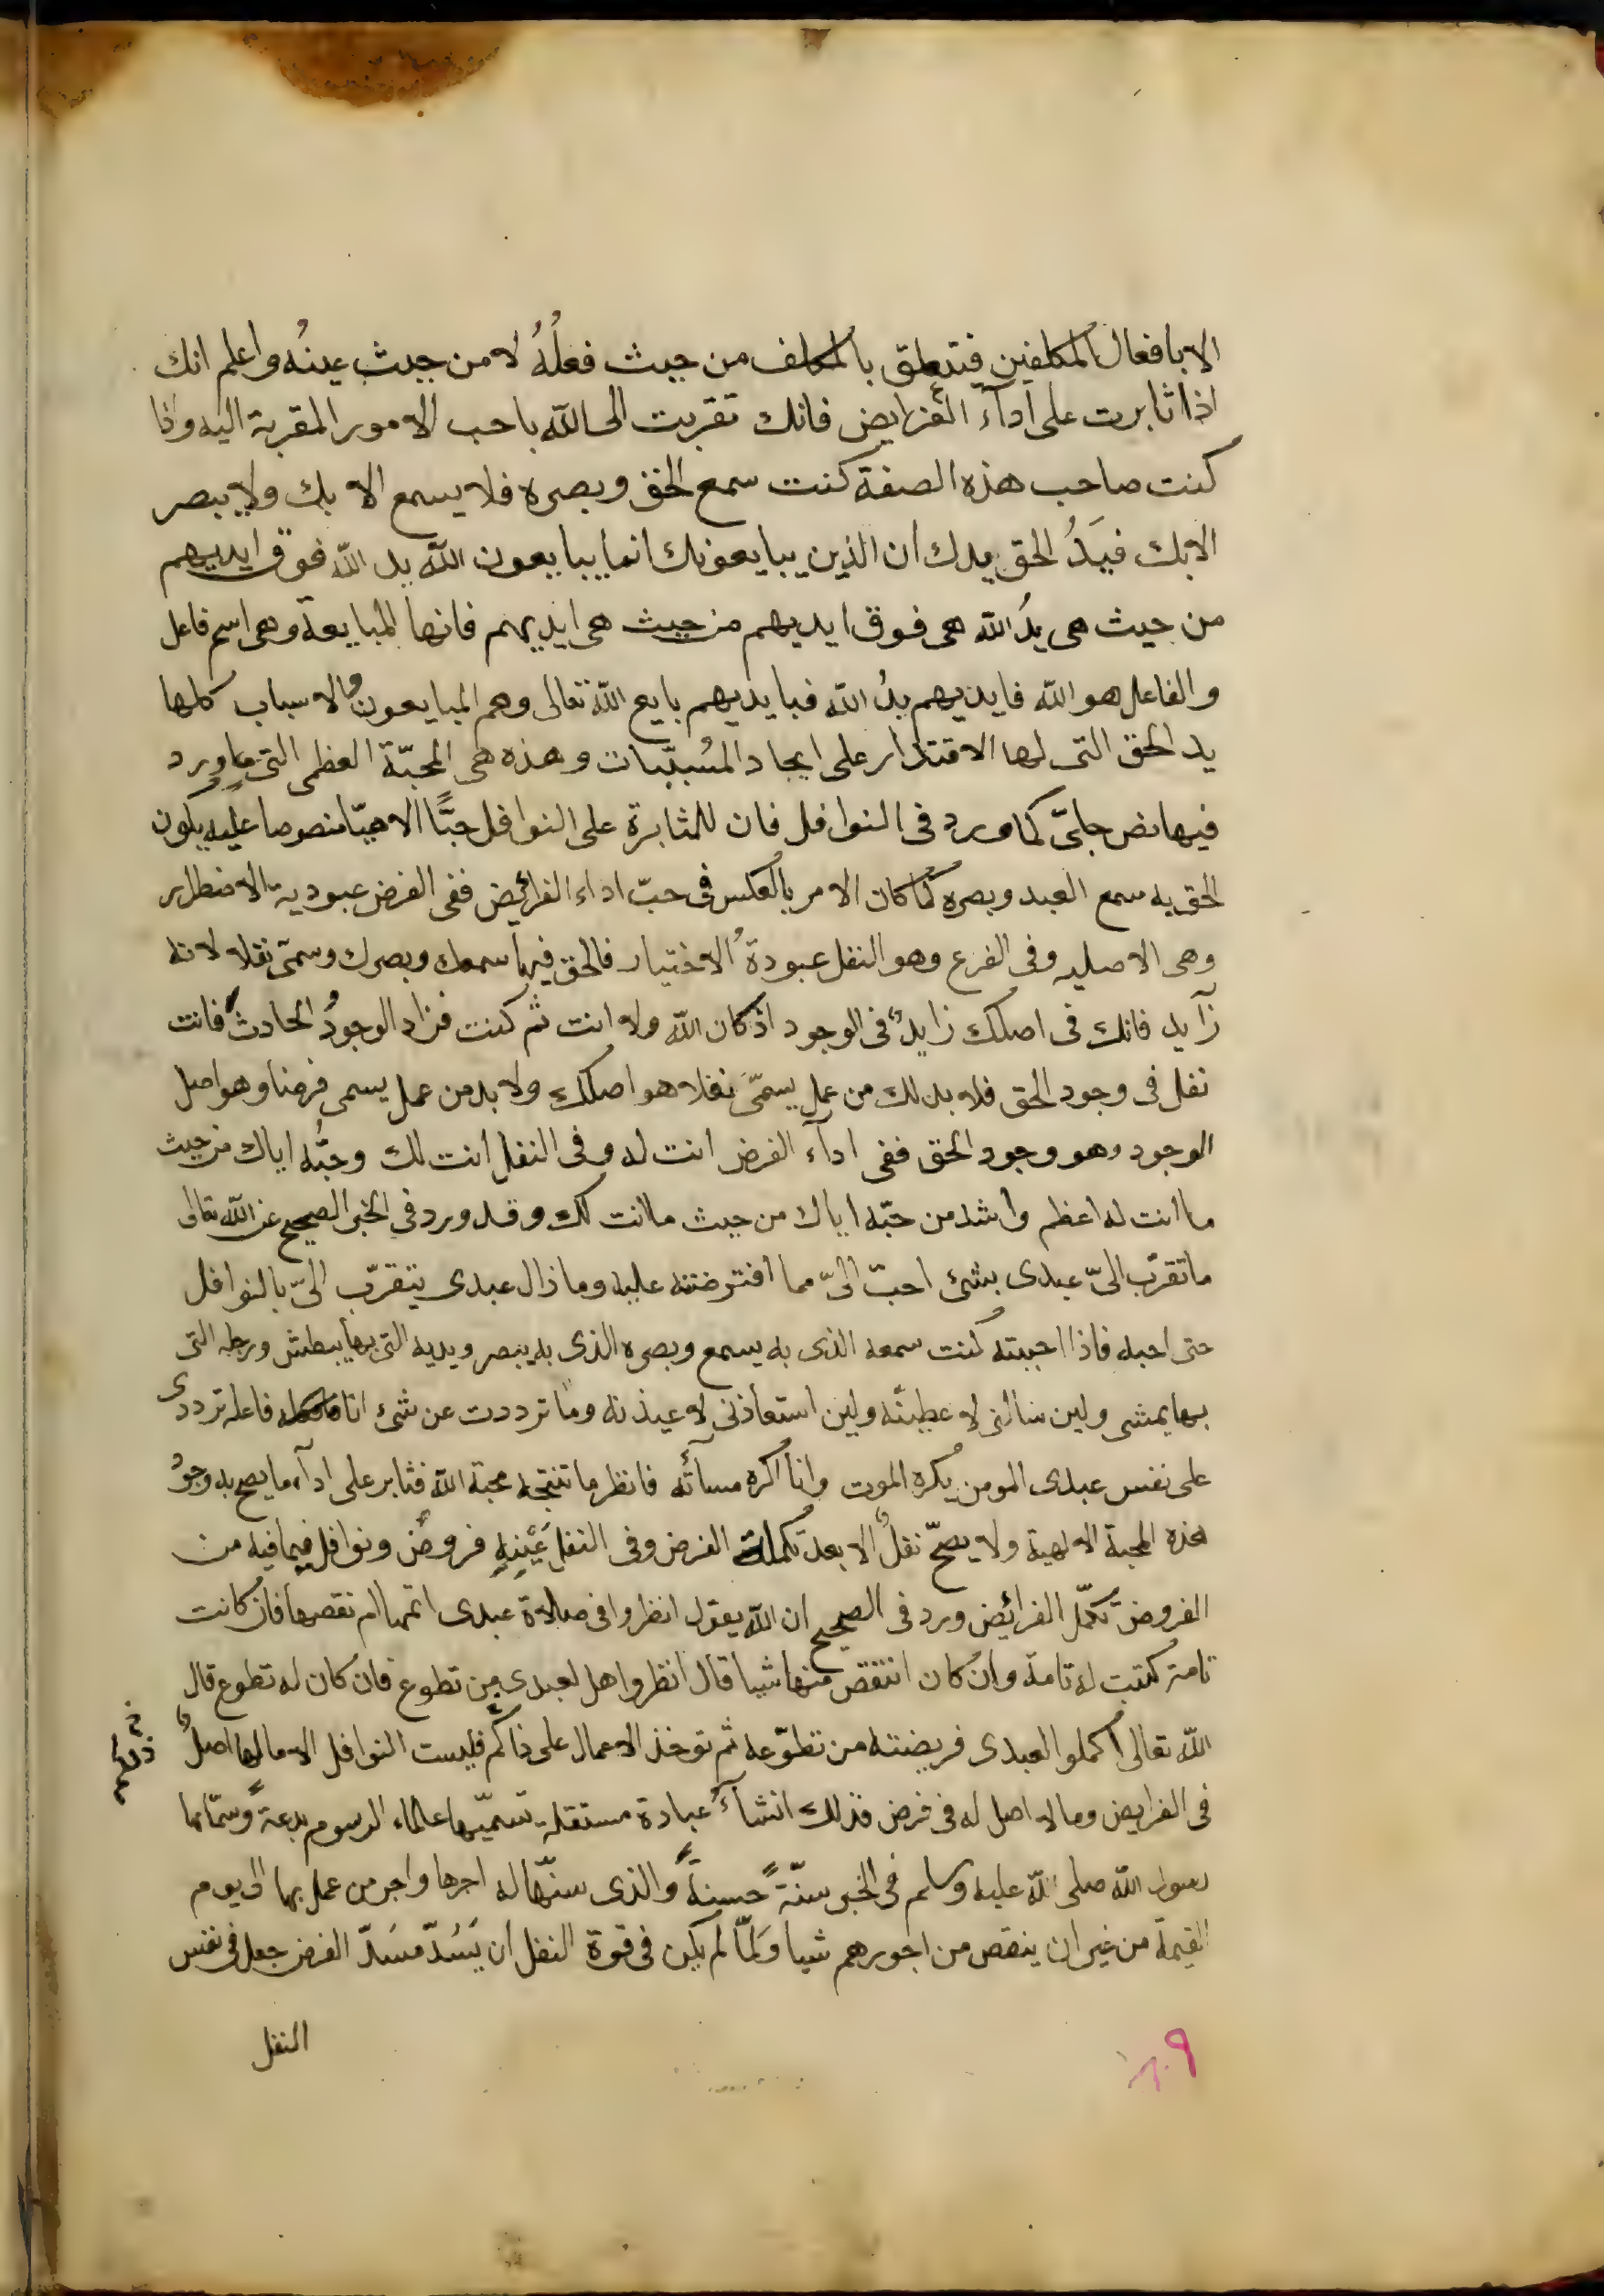 الا بافعال المكلفين فيتعلق بالمكلف من حيث فعلُهُ لا من حيث عينُه واعلم انك
اذا ثابرت على ادآء الفرايض فانك تقربت الى الله باحب الامور المقربة اليه واذا
كنت صاحب هذه الصفة كنت سمع الحق وبصره فلا يسمع الا بك ولا يبصر
الا بك فيَدُ الحق يدك ان الذين يبايعونك انما يبايعون الله يد الله فوق ايديهم
من حيث هى يدُ الله هى فوق ايديهم من حيث هى ايديهم فانها المبايعة وهى اسم فاعل
والفاعل هو الله فايديهم يدُ الله فبايديهم بايع الله تعالى وهم المبايعون والاسباب كلها
يد الحق التى لها الاقتدار على ايجاد المُسَبّبات وهذه هى المحبّة العظمى التى ما ورد
فيها نص جلىّ كما ورد فى النوافل فان للمثابرة على النوافل حبًّا الاهيّا منصوصا عليه يكون
الحق به سمع العبد وبصره كما كان الامر بالعكس فى حبّ اداء الفرائض ففى الفرض عبودية الاضطرار
وهى الاصليه وفى الفرع وهو النفل عبودة الاختيار فالحق فيها سمعك وبصرك وسمّى نفلا لانه
زآيد فانك فى اصلك زايدٌ فى الوجود اذ كان الله ولا انت ثم كنت فزاد الوجودُ الحادث فانت
نفل فى وجود الحق فلا بد لك من عمل يسمّى نفلا هو اصلك ولا بد من عمل يسمى فرضا وهو اصل
الوجود وهو وجود الحق ففى ادآء الفرض انت له وفى النفل انت لك وحبُّه اياك من حيث
ما انت له اعظم واشد من حبّه اياك من حيث ما انت لك وقد ورد فى الخبر الصحيح عن الله تعالى
ما تقرّب الىّ عبدى بشئ احبّ الىّ مما افترضته عليه وما زال عبدى يتقرّب الىّ بالنوافل
حتى احبه فاذا احببته كنت سمعه الذى به يسمع وبصره الذى به يبصر ويديه التى بها يبطش ورجله التى
بها يمشى ولين سالنى لاعطينّه ولين استعاذنى لاعيذنه وما ترددت عن شئ انا فاعله ترددى
على نفس عبدى المومن يكره الموت وانا اكره مسآئته فانظر ما تنتجه محبة الله فثابر على ادآء ما يصح به وجودُ
هذه المحبة الالهية ولا يصحّ نفلٌ الا بعد تكملة الفرض وفى النفل عَيْنِهِ فروضٌ ونوافل فبما فيه من
الفروض تكمّل الفرائض ورد فى الصحيح ان الله يقول انظروا فى صلاة عبدى اتمها ام نقصها فان كانت
تامة كتبت له تامة وان كان انتقص منها شيا قال انظروا هل لعبدى من تطوع فان كان له تطوع قال
الله تعالى اكملوا لعبدى فريضته من تطوّعه ثم توخذ الاعمال على ذاكم فليست النوافل الا ما لها اصلٌ
ذلكم
فى الفرايض وما لا اصل له فى فرض فذلك انشآءُ عبادة مستقلة تسمّيها علماء الرسوم بدعةً وسمّاها
رسول الله صلى الله عليه وسلم فى الخبر سنّةً حسنةً والذى سنّها له اجرها واجر من عمل بها الى يوم
القيمة من غير ان ينقص من اجورهم شيا ولَمّا لم يكن فى قوة النفل ان يَسُدّ مَسَدّ الفرض جعل فى نفس
النفل